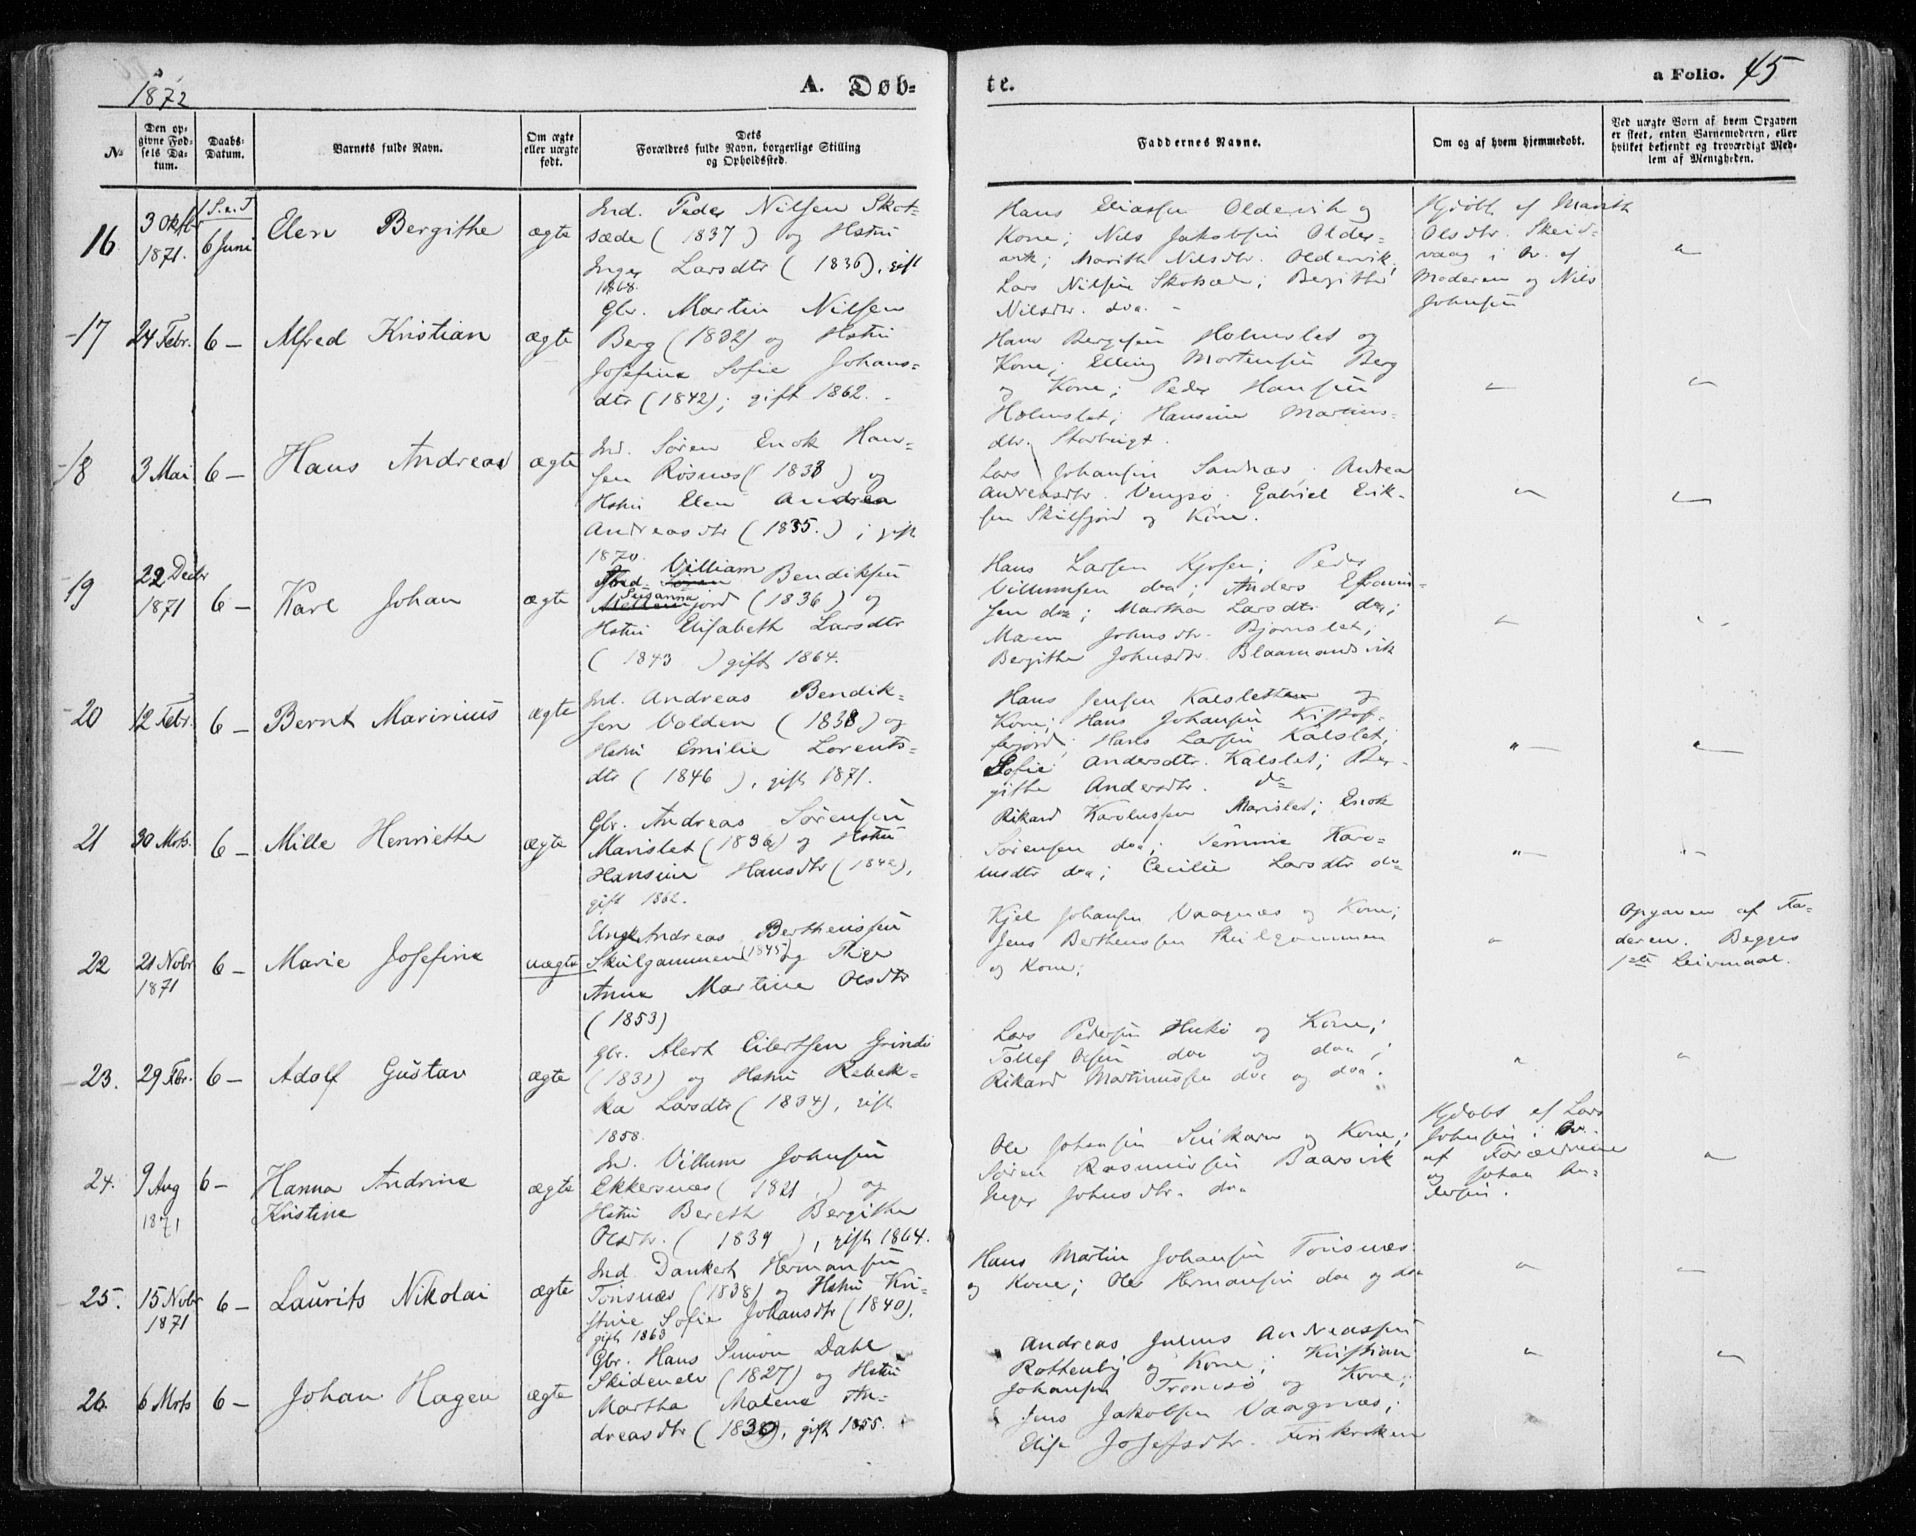 1872
A. Døb-
te.
a Folio. 45
No
Den op-
givne Fød-
sels Da-
tum.
Daabs-
Datum.
Barnets fulde Navn.
Om ægte
eller uægte
født.
Dets
Forældres fulde Navn, borgerlige Stilling
og Opholdssted.
Faddernes Navne.
Om og af hvem hjemmedøbt.
Ved uægte Børn af hvem Opgaven
er skeet, enten Barnemoderen, eller
hvilket bekjendt og troværdigt Med-
lem af Menigheden.
16
3 Oktbr
1871.
1 S. e. T
6 Juni
Elen Bergithe
ægte
Ind. Peder Nilsen Skot-
sæde (1837) og Hstru
Inger Larsdtr (1836), gift
1868.
Hans Eliassen Oldervik og
Kone; Nils Jakobsen Older-
vik; Marith Nilsdtr. Oldervik;
Lars Nilsen Skotsæde; Bergithe
Nilsdtr. do. -
Hjdøbt af Marith
Olsdtr. Skeid-
vaag i Ov. af
Moderen og Nils
Johnsen
"
17
24 Febr.
6 -
Alfred Kristian
ægte
Gbr. Martin Nilsen
Berg (1832) og Hstru
Josefine Sofie Johans-
dtr (1842); gift 1862. -
Hans Bergesen Holmeslet og
Kone; Elling Mortensen Berg
og Kone; Peder Hansen
Holmslet; Hansine Martins-
dtr. Storbugt.
"
"
18
3 Mai
6 -
Hans Andreas
ægte
Ind. Søren Enok Han-
sen Røsnes (1838) og
Hstru Elen Andrea
Andreasdtr (1835.); gift
1870.
Lars Johansen Sandnæs; Andrea
Andreasdtr. Vengsø; Gabriel Erik-
sen Skulsfjord og Kone.
"
"
19
22 Decbr
1871
6 -
Karl Johan
ægte
Villiam Bendiksen
(1836) og
Susanna
Hstru Elisabeth Larsdtr
(1843) gift 1864.
Hans Larsen Kjosen; Peder
Villumsen do; Anders Efraim-
sen do; Martha Larsdtr do;
Maren Johnsdtr. Bjørnslet;
Bergithe Johnsdtr. Blaamandsvik
"
"
20
12 Febr.
6 -
Bernt Marinius
ægte
Ind. Andreas Bendik-
sen Volden (1838) og
Hstru Emilie Lorents-
dtr (1846), gift 1871.
Hans Jensen Kalsletten og
Kone; Hans Johansen Kistof-
ferjord; Hans Larsen Kalslet;
Sofie Andersdtr. Kalslet; Ber-
githe Andersdtr. do
"
"
21
30 Mrts.
6 -
Mille Henriette
ægte
Gbr. Andreas Sørensen
Marislet (1836) og Hstru
Hansine Hansdtr (1842),
gift 1862.
Rikard Karolussen Marislet; Enok
Sørensen do; Jemmine Karo-
lusdtr do; Cecilie Larsdtr do
"
"
22
21 Nobr
1871
6 -
Marie Josefine
uægte
Ungk. Andreas Berthenssen
Skulgammen (1845) og Pige
Anne Martine Olsdtr
(1853)
Kjel Johansen Vaagnæs og Kone;
Jens Berthenssen Skulgammen
og Kone;
"
Opgaven af Fa-
deren. Begges
1ste Leiermaal.
23.
29 Fbr.
6 -
Adolf Gustav
ægte
Gbr. Alert Eilertsen Grindø
(1831) og Hstru Rebek-
ka Larsdtr (1834), gift
1858.
Lars Pedersen Hukø og Kone;
Tollef Olsen do og do;
Rikard Martinussen do og do.
"
"
24.
9 Aug
1871
6 -
Hanna Andrine
Kristine
ægte
Ind. Villum Johnsen
Ekkersnæs (1821) og
Hstru Bereth Bergithe
Olsdtr. (1839), gift 1864.
Ole Johansen og Kone;
Søren Rasmussen Baarsvik
Inger Johnsdtr. do
Hjdøbt af Lars
Johnsen i Ov.
af Forældrene
og Johan An-
dersen.
"
25.
15 Nobr
1871
6 -
Laurits Nikolai
ægte
Ind. Dankert Hermansen
Tønsnæs (1838) og Hstru Kri-
stine Sofie Johansdtr (1840),
gift 1863
Hans Martin Johansen Tønsnæs
og Kone; Ole Hermansen do og do
"
"
26.
6 Mrts
6 -
Johan Hagen
ægte
Gbr. Hans Simon Dahl
Skidenelv (1827) og Hstru
Martha Malene An-
dreasdtr (1830), gift 1855.
Andreas Julius Andreassen
Rottenby og Kone; Kristian
Johansen Tromsø og Kone;
Jens Jakobsen Vaagnæs;
Elise Josefsdtr. Finkroken
"
"